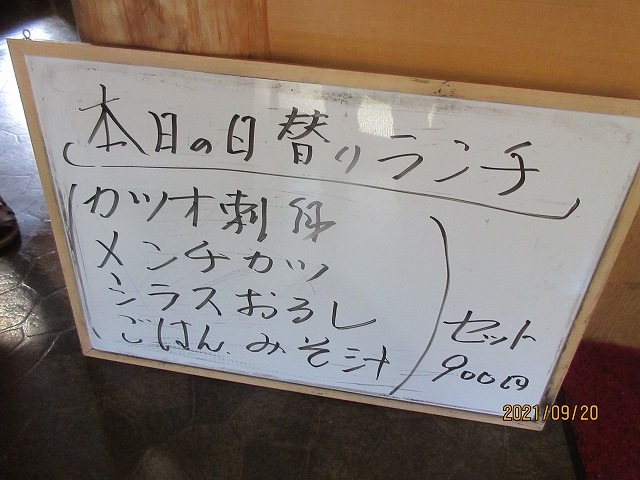 本日の日替りランチ
カツオ刺身
メンチカツ
シラスおろし
ごはん、みそ汁
セット
900円
2021/09/20